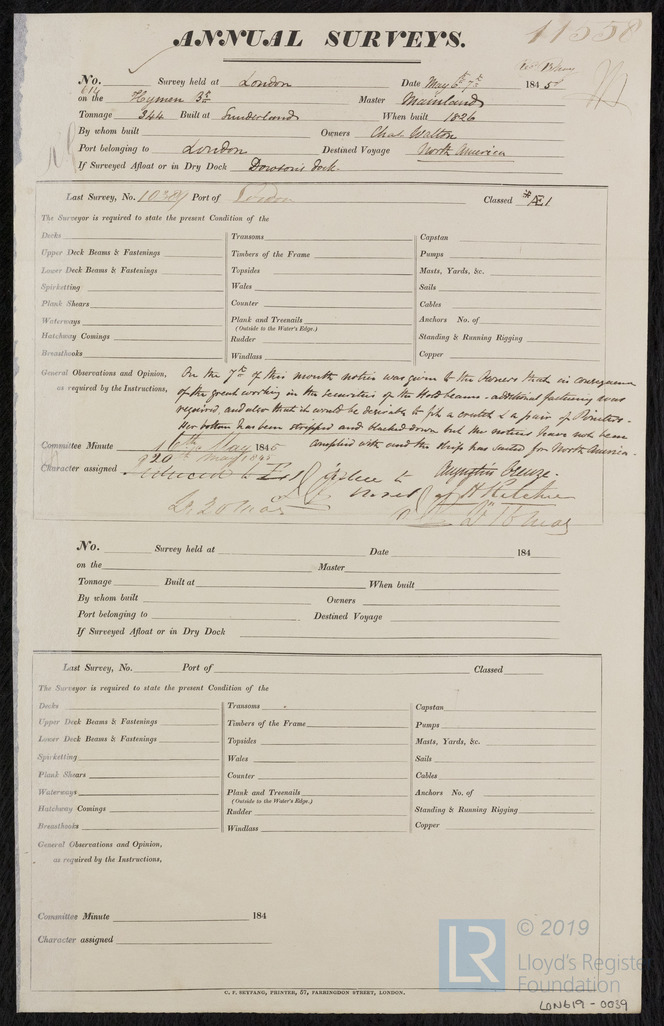 ANNUAL SURVEYS. 11558
No. Survey held at London Date May 6th 7th 1845
on the Hymen Br Master Mainland
Tonnage 344 Built at Sunderland When built 1826
By whom built Owners Chas Walton
Port belonging to London Destined Voyage North America
If Surveyed Afloat or in Dry Dock Dowson's dock.
Last Survey, No. 10389 Port of London Classed Æ1
The Surveyor is required to state the present Condition of the
Decks Transoms Capstan
Upper Deck Beams & Fastenings Timbers of the Frame Pumps
Lower Deck Beams & Fastenings Topsides Masts, Yards, &c.
Spirketting Wales Sails
Plank Shears Counter Cables
Waterways Plank and Treenails Anchors No. of
(Outside to the Water's Edge.)
Hatchway Comings Rudder Standing & Running Rigging
Breasthooks Windlass Copper
General Observations and Opinion, On the 7th of this month notice was given to the Owners that in consequence
as required by the Instructions, of the great working in the securities of the Hold beams - additional fastening was
required, and also that it would be desirable to fit a crutch & a pair of Pointers.
Her bottom has been stripped and blacked down but the notices have not been
complied with and the ship has sailed for North America.
Committee Minute 16th May 1845
Character assigned 20th May 1845
No. Survey held at Date 184
on the Master
Tonnage Built at When built
By whom built Owners
Port belonging to Destined Voyage
If Surveyed Afloat or in Dry Dock
Last Survey, No. Port of Classed
The Surveyor is required to state the present Condition of the
Decks Transoms Capstan
Upper Deck Beams & Fastenings Timbers of the Frame Pumps
Lower Deck Beams & Fastenings Topsides Masts, Yards, &c.
Spirketting Wales Sails
Plank Shears Counter Cables
Waterways Plank and Treenails Anchors No. of
(Outside to the Water's Edge.)
Hatchway Comings Rudder Standing & Running Rigging
Breasthooks Windlass Copper
General Observations and Opinion,
as required by the Instructions,
Committee Minute 184
Character assigned
C. F. SEYFANG, PRINTER, 57, FARRINGDON STREET, LONDON.
LR © 2019
Lloyd's Register
Foundation
LON619-0039